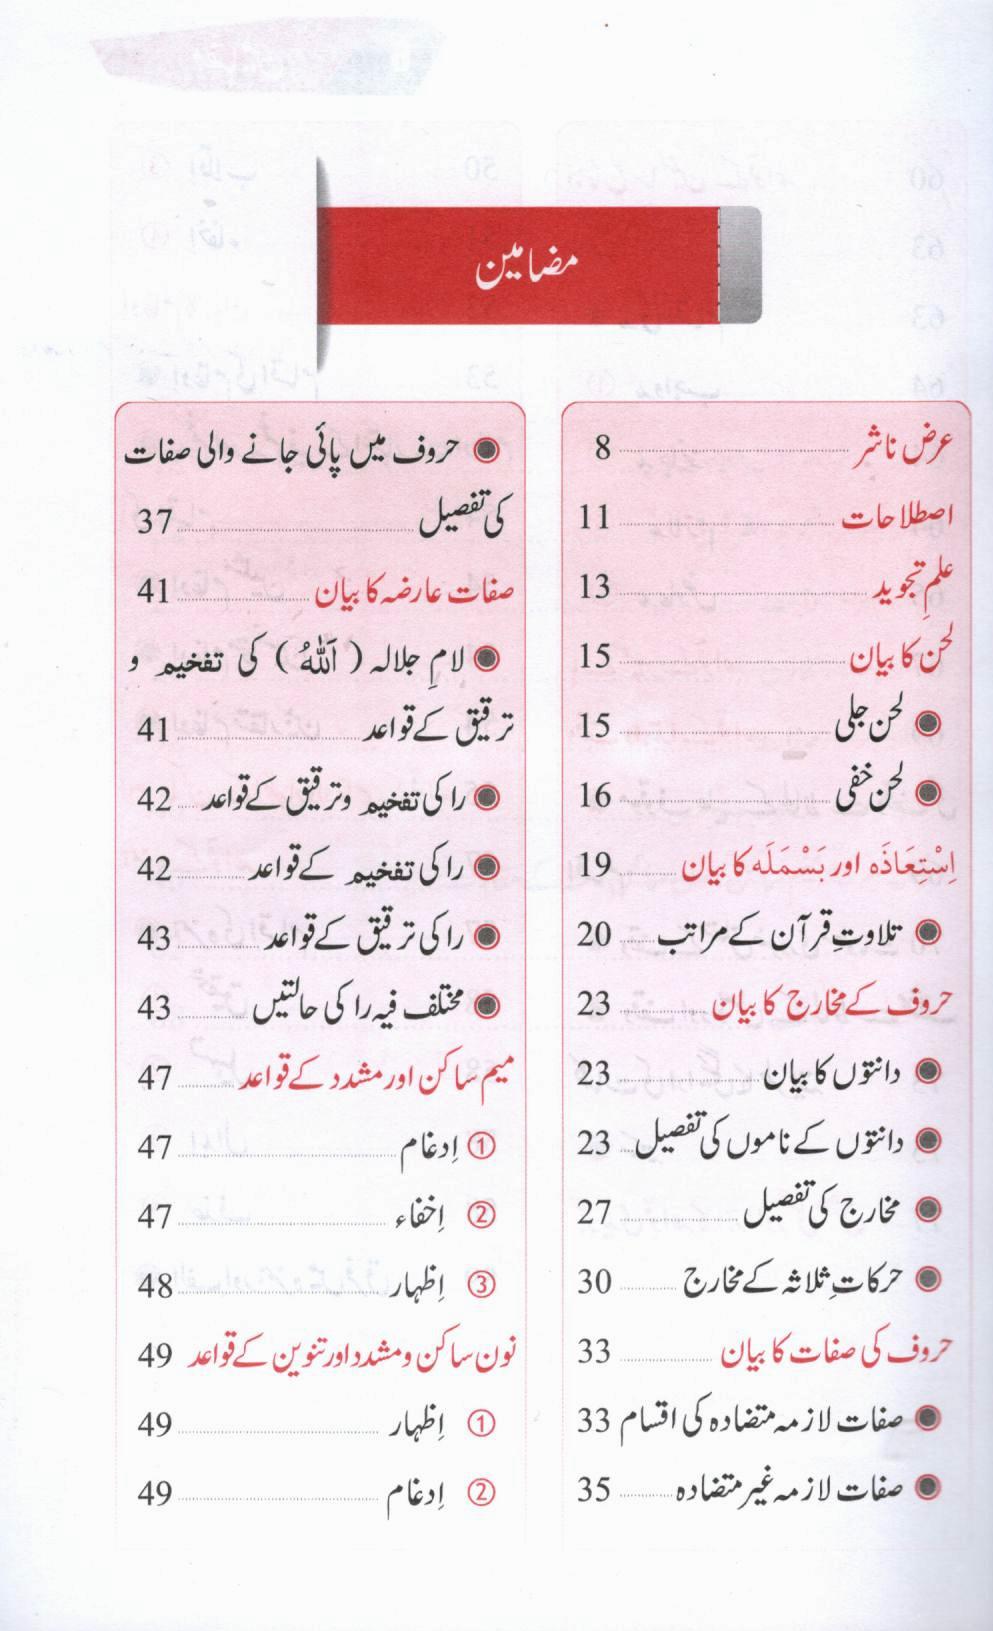 مضامین
عرض ناشر 8
اصطلاحات 11
علمِ تجوید 13
لحن کا بیان 15
لحن جلی 15
لحن خفی 16
اِسْتِعَاذَه اور بَسْمَلَه کا بیان 19
تلاوتِ قرآن کے مراتب 20
حروف کے مخارج کا بیان 23
دانتوں کا بیان 23
دانتوں کے ناموں کی تفصیل 23
مخارج کی تفصیل 27
حرکاتِ ثلاثہ کے مخارج 30
حروف کی صفات کا بیان 33
صفات لازمہ متضادہ کی اقسام 33
صفات لازمہ غیر متضادہ 35
حروف میں پائی جانے والی صفات
کی تفصیل 37
صفات عارضہ کا بیان 41
لامِ جلالہ (اَللّٰهُ) کی تفخیم و
ترقیق کے قواعد 41
را کی تفخیم وترقیق کے قواعد 42
را کی تفخیم کے قواعد 42
را کی ترقیق کے قواعد 43
مختلف فیہ را کی حالتیں 43
میم ساکن اور مشدد کے قواعد 47
① اِدغام 47
② اِخفاء 47
③ اِظہار 48
نون ساکن ومشدد اور تنوین کے قواعد 49
① اِظہار 49
② اِدغام 49